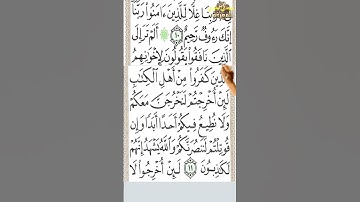 بنا غلا للذين ءامنوا ربنا
إنك رءوف رحيم ١٠ ألم تر إلى
الذين نافقوا يقولون لإخونهم
الذين كفروا من أهل الكتب
لئن أخرجتم لنخرجن معكم
ولا نطيع فيكم أحدا أبدا وإن
قوتلتم لننصرنكم والله يشهد إنهم
لكذبون ١١ لئن أخرجوا لا